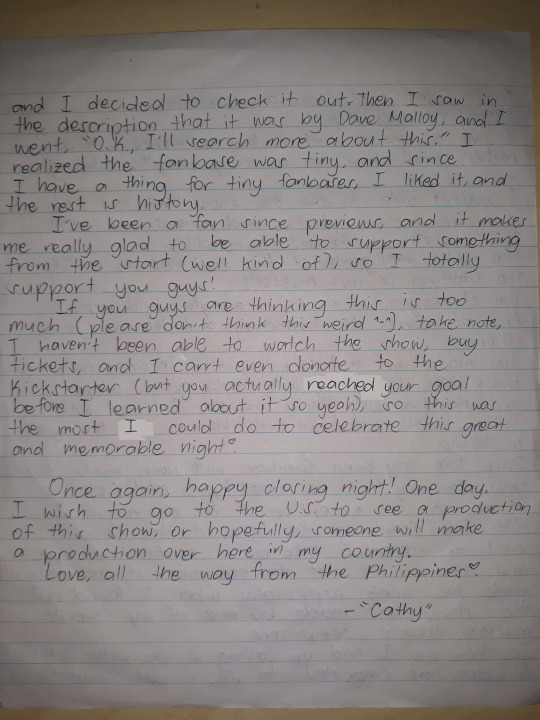 and I decided to check it out. Then I saw in
the description that it was by Dave Malloy, and I
went, "O.K., I'll search more about this." I
realized the fanbase was tiny, and since
I have a thing for tiny fanbases, I liked it, and
the rest is history.
I've been a fan since previews, and it makes
me really glad to be able to support something
from the start (well kind of), so I totally
support you guys!
If you guys are thinking this is too
much (please don't think this weird ^-^), take note,
I haven't been able to watch the show, buy
tickets, and I can't even donate to the
Kickstarter (but you actually reached your goal
before I learned about it so yeah), so this was
the most I could do to celebrate this great
and memorable night♡
Once again, happy closing night! One day,
I wish to go to the U.S. to see a production
of this show, or hopefully, someone will make
a production over here in my country.
Love, all the way from the Philippines♡.
-"Cathy"